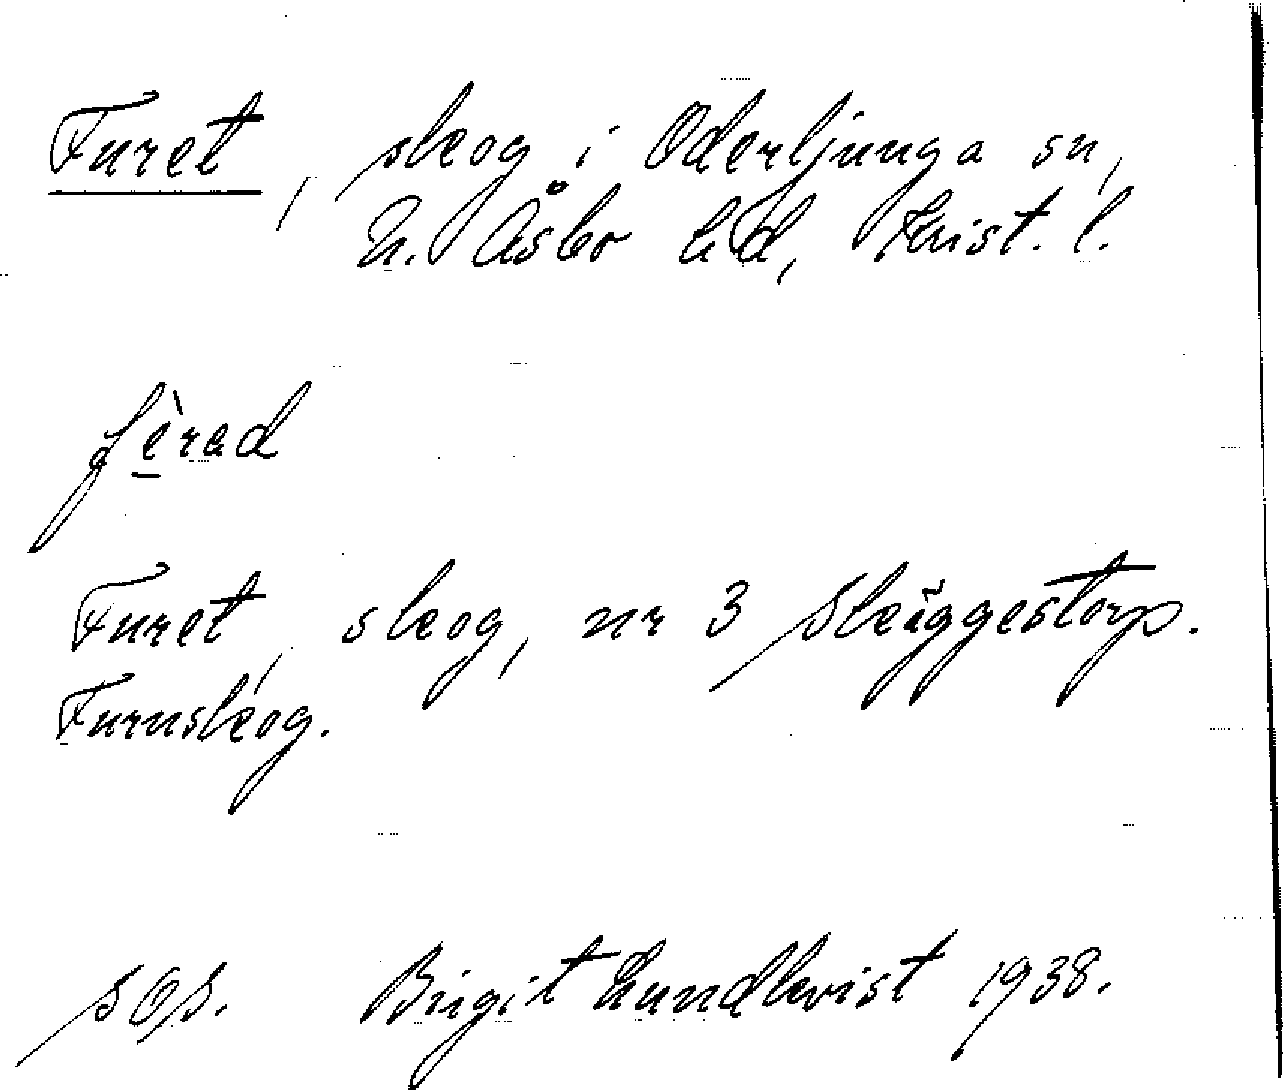 Furet, skog i Oderljunga sn,
N. Åsbo hd, Krist. l.
fèrad
Furet, skog, nr 3 Skäggestorp.
Furuskog.
SOS. Birgit Lundkvist 1938.